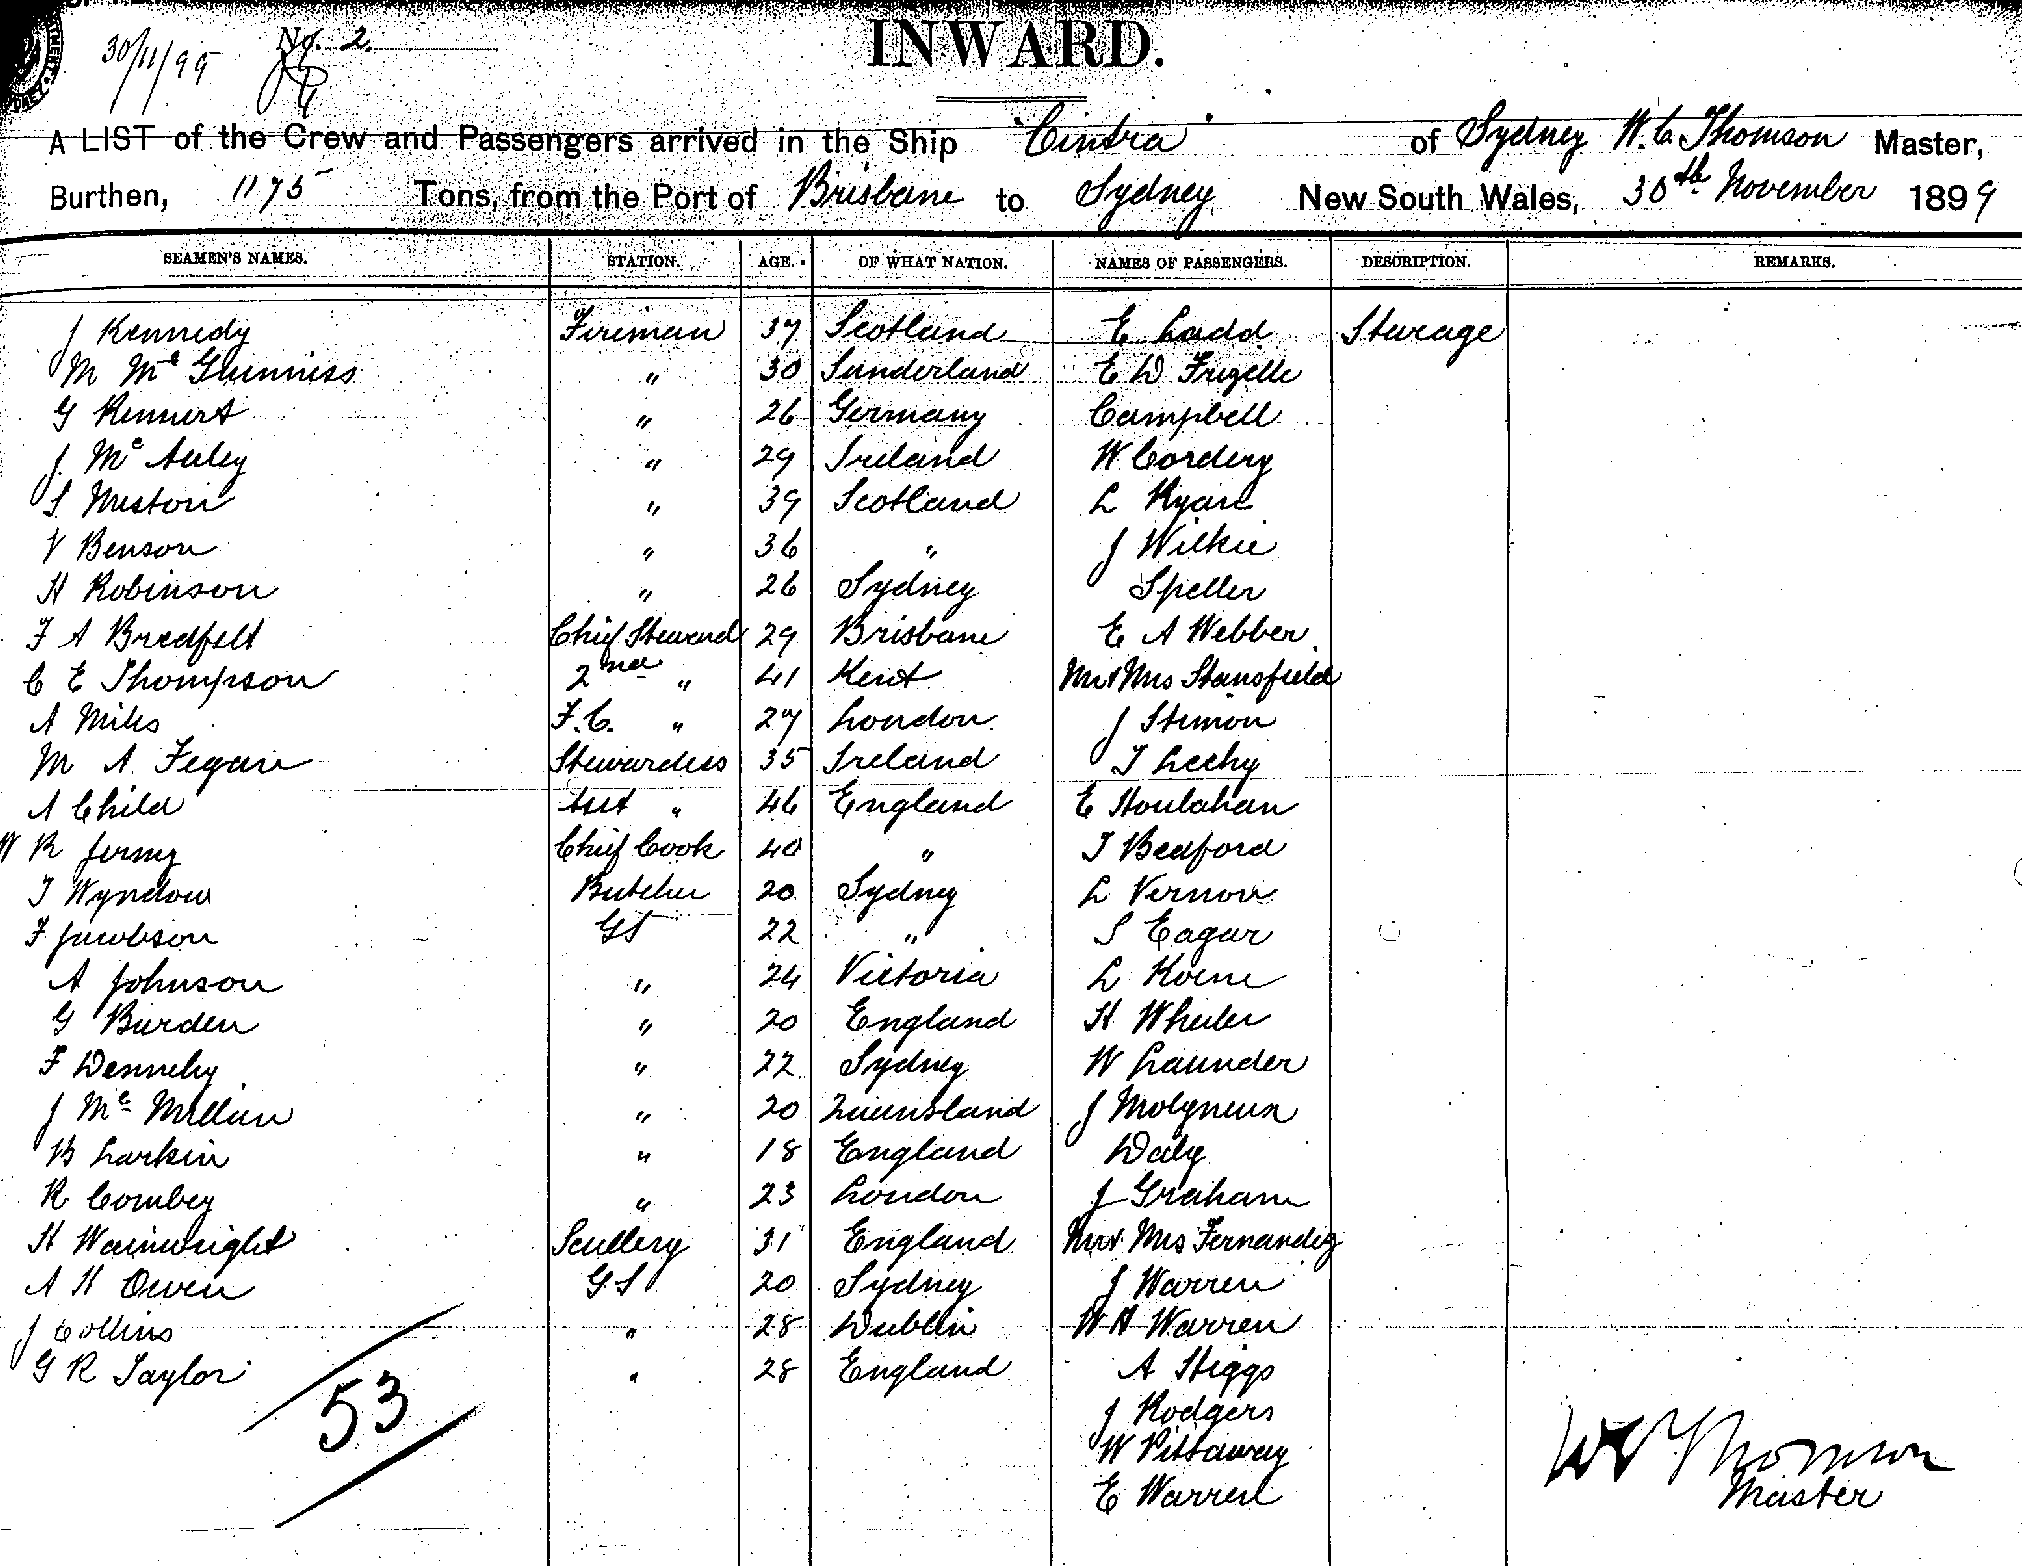 30/11/99 No. 2.
INWARD.
A LIST of the Crew and Passengers arrived in the Ship "Cintra" of Sydney W. C. Thomson Master,
Burthen, 1175 Tons, from the Port of Brisbane to Sydney New South Wales, 30th November 1899
SEAMEN'S NAMES. STATION. AGE. OF WHAT NATION. NAMES OF PASSENGERS. DESCRIPTION. REMARKS.
J Kennedy Fireman 37 Scotland E Ladd Sterage
M Mc Guinniss " 30 Sunderland E W Frizelle
G Rennert " 26 Germany Campbell
J. Mc Auley " 29 Ireland W Cordery
S Meston " 39 Scotland L Ryan
V Benson " 36 " J Wilkie
H Robinson " 26 Sydney Speller
F A Bredfelt Chief Steward 29 Brisbane E A Webber
C E Thompson 2nd " 41 Kent Mr & Mrs Stansfield
A Miles F.C. " 27 London J Stimon
M A Fegan Stewardess 35 Ireland T Leehy
A Child Asst " 46 England E Houlahan
W R Jermy Chief Cook 40 " T Bedford
T Wyndow Butcher 20 Sydney L Vernon
F Jacobson GS 22 " S Eagar
A Johnson " 24 Victoria L Koene
G Burden " 20 England H Wheeler
F Denneby " 22 Sydney W Launder
J Mc Millan " 20 Queensland J Molyneux
B Larkin " 18 England Daly
R Combey " 23 London J Graham
H Wainwright Scullery 31 England Mr & Mrs Fernandez
A H Owen GS 20 Sydney J Warren
J Collins " 28 Dublin W H Warren
G R Taylor " 28 England A Higgs
53 J Rodgers
W Pittaway
E Warren
W C Thomson
Master